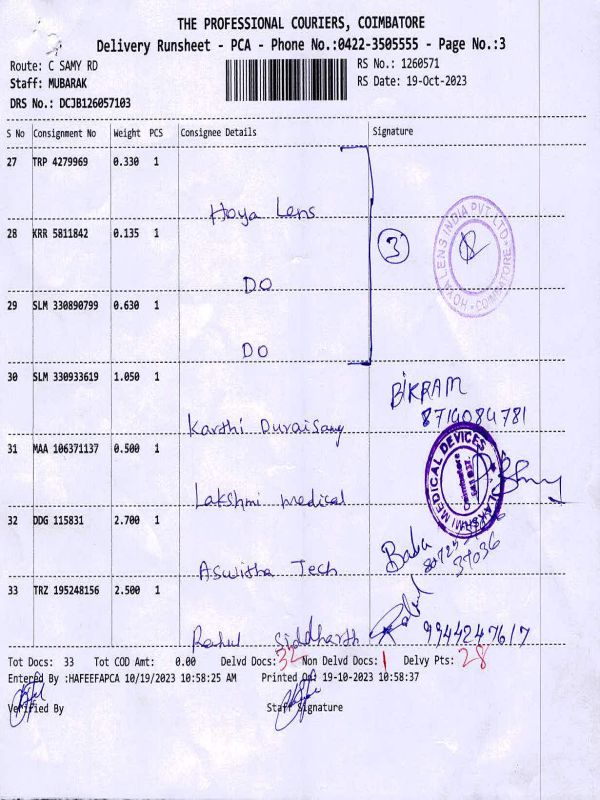 THE PROFESSIONAL COURIERS, COIMBATORE
Delivery Runsheet - PCA - Phone No.:0422-3505555 - Page No.:3
Route: C SAMY RD
RS No.: 1260571
Staff: MUBARAK
RS Date: 19-Oct-2023
DRS No.: DCJB126057103
S No Consignment No Weight PCS Consignee Details Signature
27 TRP 4279969 0.330 1
Hoya Lens
28 KRR 5811842 0.135 1
3
LENS INDIA PVT LTD COIMBATORE HOYA
DO
29 SLM 330890799 0.630 1
DO
30 SLM 330933619 1.050 1
BIKRAM
8714084781
Karthi Duraisamy
31 MAA 106371137 0.500 1
LAKSHMI MEDICAL DEVICES
Lakshmi medical
32 DDG 115831 2.700 1
Baba
37036
Aswitha Tech
33 TRZ 195248156 2.500 1
Rahul Siddharth
Rahul
9944247617
Tot Docs: 33 Tot COD Amt: 0.00 Delvd Docs: 32 Non Delvd Docs: 1 Delvy Pts: 28
Entered By :HAFEEFAPCA 10/19/2023 10:58:25 AM Printed On: 19-10-2023 10:58:37
Verified By Staff Signature